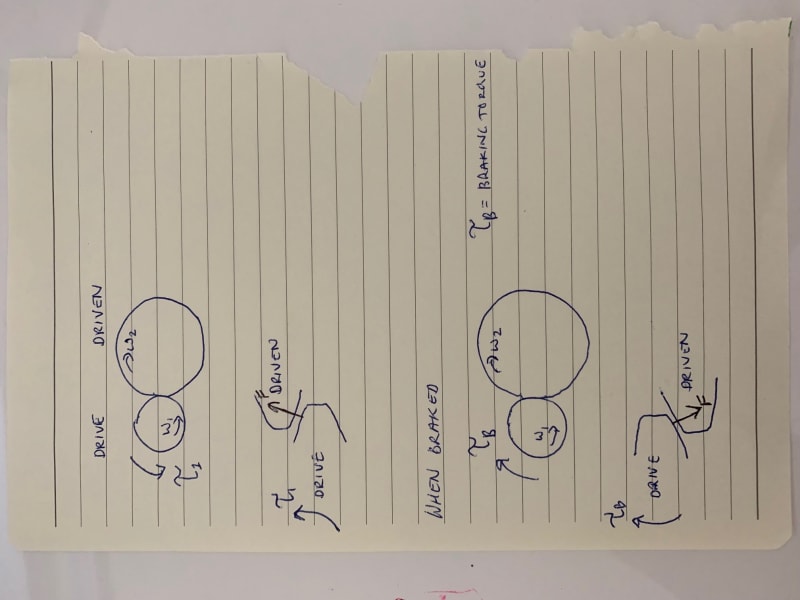 DRIVE DRIVEN
ω2
ω1
τ1
F
DRIVEN
τ1
DRIVE
WHEN BRAKED
τB τB = BRAKING TORQUE
ω2
ω1
τB
DRIVE
DRIVEN
F